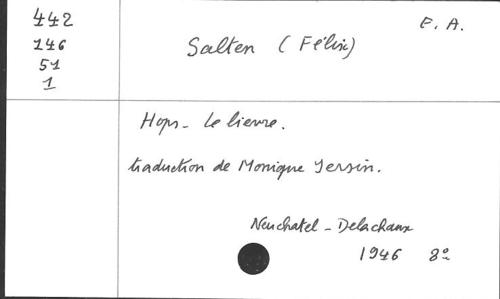 442
146
51
1
E. A.
Salten (Félix)
Hops - le lievre.
traduction de Monique Jersin.
Neuchatel - Delachaux
1946 8º